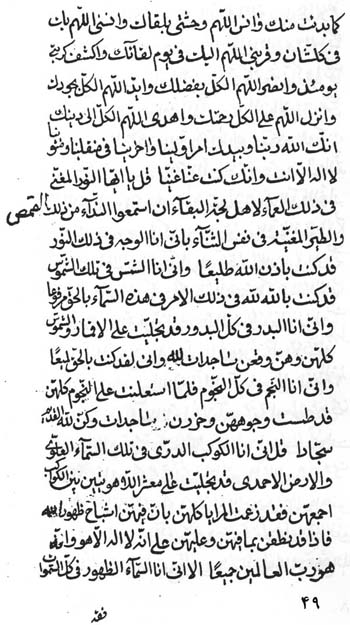 كما بدئت منك وانس اللهم وحشتى بلقائك وانسنى اللهم بك
فى كلشان وقربنى اللهم اليك فى يوم لقائك واكشف كربتى
يومئذ وانصر اللهم الكل بفضلك وايد اللهم الكل بجودك
وانزل اللهم على الكل رحمتك واهدى اللهم الكل الى دينك
انك الله ربنا وبيدك امر اولينا واخرينا فى منقلبنا ومثوانا
لا اله الا انت وانك كنت عنا غنيا قل يا ايها النور المغنى
فى ذلك العماء لاهل لجة البقاء ان استمعوا النداء من ذلك القمص
والطير المغنية فى نفس الثناء بانى انا الوجه فى ذلك النور
قد كنت باذن الله طليعا وانى انا الشمس فى تلك الشموس
قد كنت بالله لله فى ذلك الامر فى هذه السماء بالحق مرفوعا
وانى انا البدر فى كل البدور قد تجليت على الاقمار والشموس
كلهن وهن وقعن ساجدات لله وانى لقد كنت بالحق لميعا
وانى انا النجم فى كل النجوم فلما استعليت على النجوم كلهن
قد طمست وجوههن وخررن ساجدات وكن لله القديم
سجادا قل انى انا الكوكب الدرى فى تلك السماء العلوى
والارض الاحمدى قد تجليت على معشر اللاهوتيين بين الكوكب
اجمعهن فقد زعمت المرايا كلهن بان فيهن اشباح ظهور الله
فاذا قد نطقن بما فيهن وعليهن على انه لا اله الا هو وانه
هو رب العالمين جميعا الا انى انا السماء الظهور فى كل السموات
٤٩
فقد